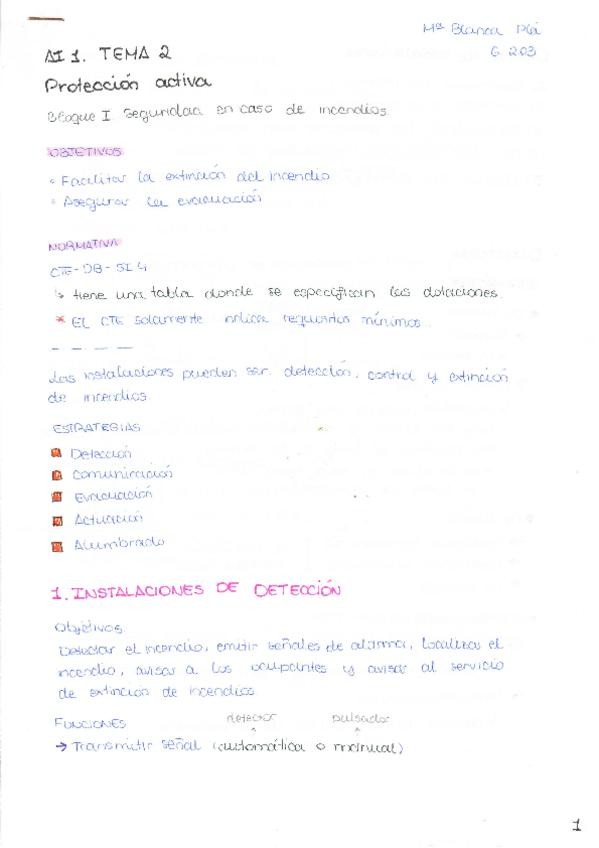 Mª Blanca Plá
G 203
AI 1. TEMA 2
Protección activa
Bloque I Seguridad en caso de incendios.
OBJETIVOS
• Facilitar la extinción del incendio
• Asegurar la evacuación
NORMATIVA
CTE-DB-SI 4
↳ tiene una tabla donde se especifican las dotaciones.
* EL CTE solamente indica requisitos mínimos.
Las instalaciones pueden ser: detección, control y extinción
de incendios.
ESTRATEGIAS
Detección
Comunicación
Evacuación
Actuación
Alumbrado
1. INSTALACIONES DE DETECCIÓN
Objetivos
Detectar el incendio, emitir señales de alarma, localizar el
incendio, avisar a los ocupantes y avisar al servicio
de extinción de incendios.
FUNCIONES
detector pulsador
→ Transmitir señal (automática o manual)
1